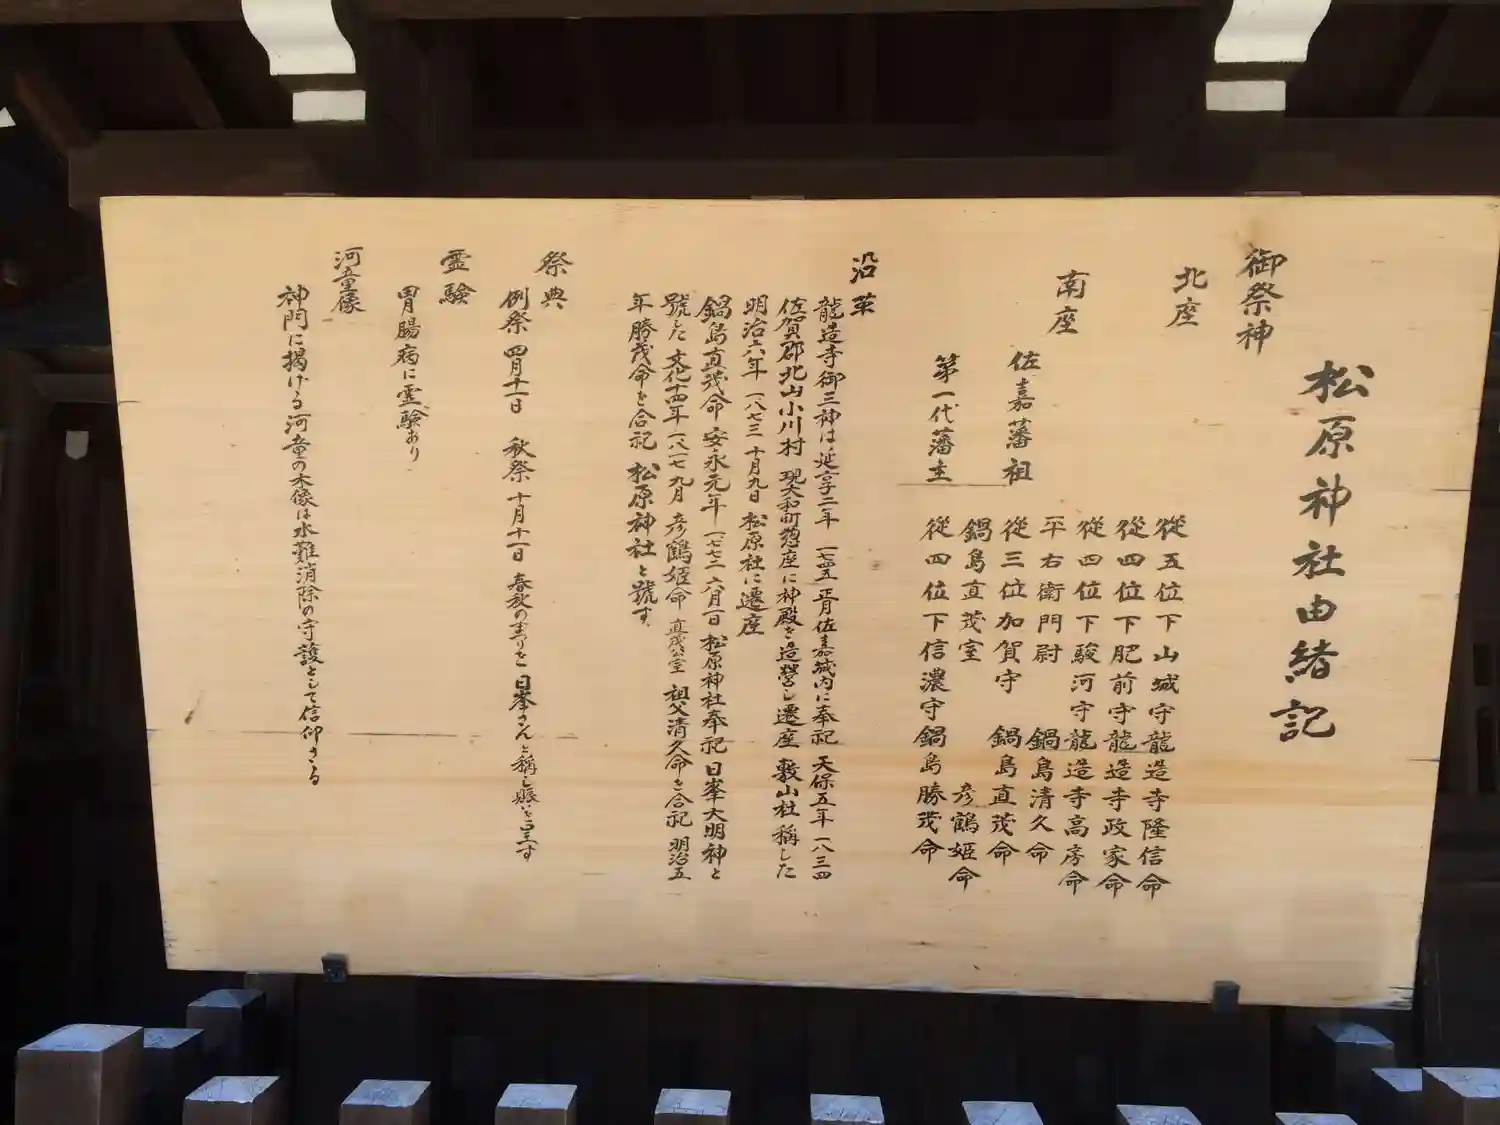 松原神社由緒記
御祭神
北座
從五位下山城守龍造寺隆信命
從四位下肥前守龍造寺政家命
從四位下駿河守龍造寺高房命
南座
平右衛門尉 鍋島清久命
佐嘉藩祖 從三位加賀守 鍋島直茂命
鍋島直茂室 彦鶴姫命
第一代藩主 從四位下信濃守鍋島勝茂命
沿革
龍造寺御三神は延享二年 一七四五 正月佐嘉城内に奉祀 天保五年 一八三四
佐賀郡北山小川村 現大和町惣座に神殿を造営し遷座 敷山社 稱した
明治六年 一八七三 十月九日 松原社に遷座
鍋島直茂命 安永元年 一七七二 六月一日 松原神社奉祀 日峯大明神と
號した 文化十四年 一八一七 九月 彦鶴姫命 直茂公室 祖父清久命を合祀 明治五
年勝茂命を合祀 松原神社と號す
祭典
例祭 四月十一日 秋祭 十月十一日 春秋のまつりを 日峯さんと稱し賑いを呈す
霊験
胃腸病に霊験あり
河童像
神門に掲げる河童の木像は水難消除の守護として信仰さる